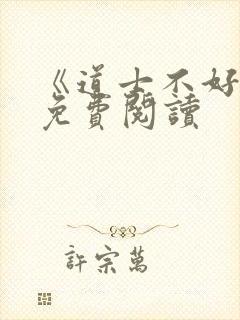 《道士不好
免費閱讀
許宗萬